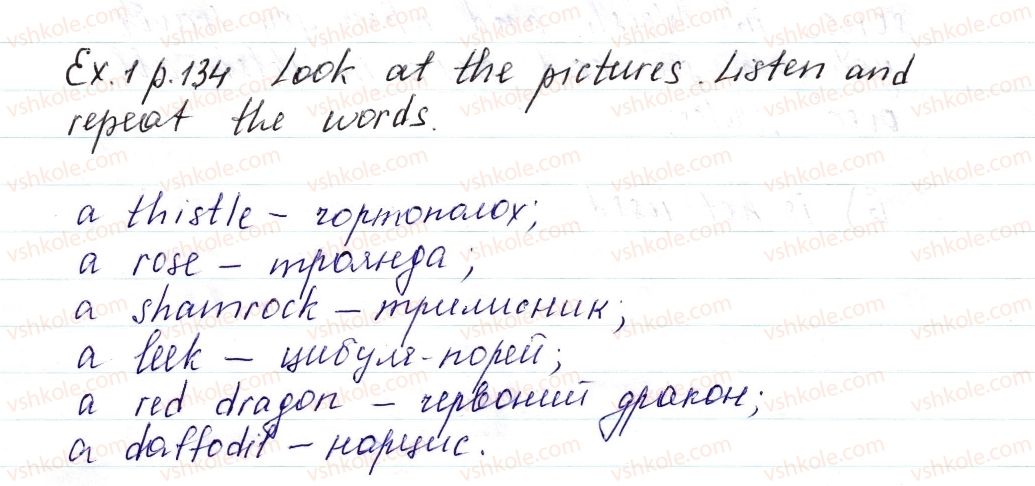 Ex. 1 p. 134 Look at the pictures. Listen and
repeat the words.
a thistle – чортополох;
a rose – троянда;
a shamrock – трилисник;
a leek – цибуля-порей;
a red dragon – червоний дракон;
a daffodil – нарцис.